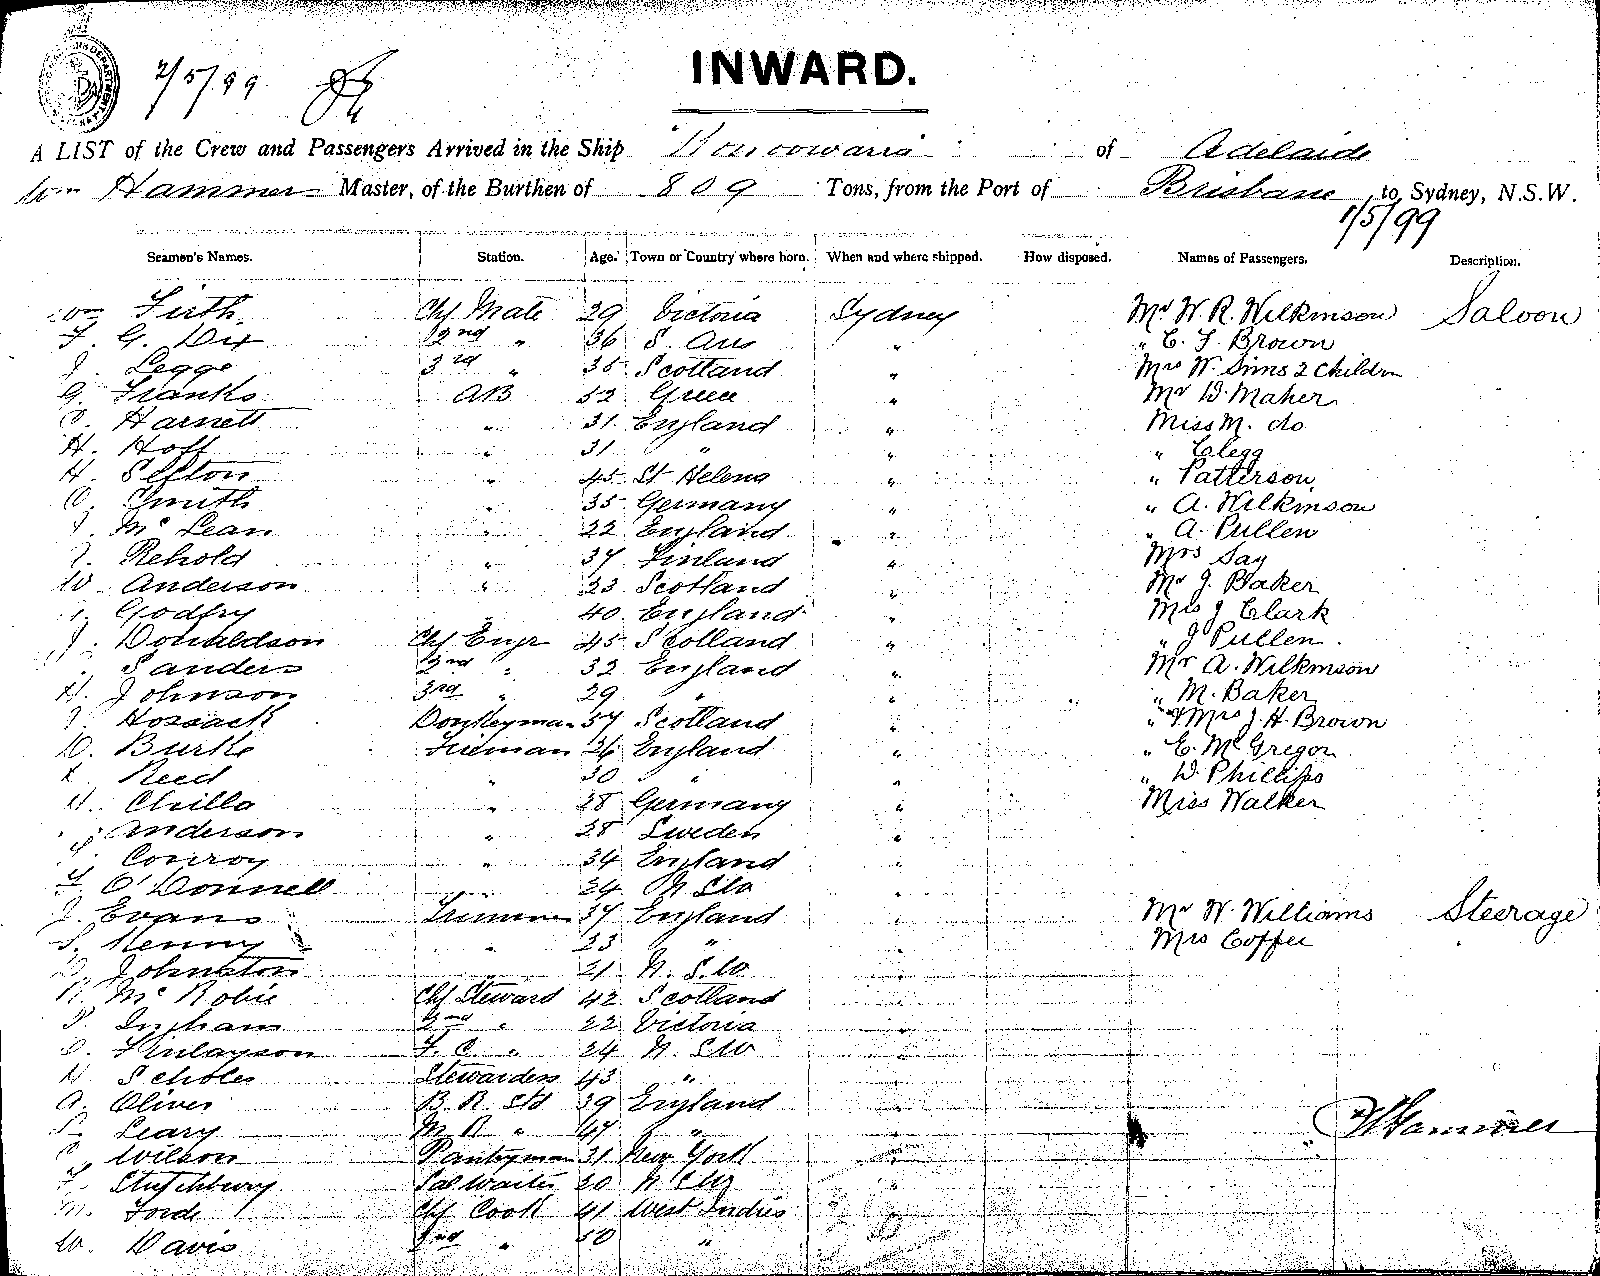 2/5/99
INWARD.
A LIST of the Crew and Passengers Arrived in the Ship Konoowarra of Adelaide
Wm Hammer Master, of the Burthen of 809 Tons, from the Port of Brisbane to Sydney, N.S.W.
1/5/99
Seamen's Names. Station. Age. Town or Country where born. When and where shipped. How disposed. Names of Passengers. Description.
Wm Firth Chf Mate 29 Victoria Sydney Mr W. R. Wilkinson Saloon
F. G. Dix 2nd " 36 S. Aus " " C. F. Brown
J. Legge 3rd " 35 Scotland " Mrs W. Sims 2 Childn
G. Franks AB 52 Greece " Mr D. Maher
C. Harnett " 31 England " Miss M. do
H. Hoff " 31 " " " Clegg
H. Sefton " 45 St Helena " " Patterson
C. Smith " 35 Germany " " A. Wilkinson
Mc Lean " 22 England " " A. Pullen
Rehold " 37 Finland " Mrs Say
W. Anderson " 23 Scotland " Mr J. Baker
Godfry " 40 England " Mrs J Clark
J. Donaldson Chf Engr 45 Scotland " " J Pullen.
Sanders 2nd " 32 England " Mr A. Wilkinson
H. Johnson 3rd " 29 " " " M. Baker
J. Hossack Donkeyman 57 Scotland " " & Mrs J. H. Brown
D. Burke Fireman 26 England " " E. McGregor
Reed " 30 " " " D. Phillips
H. Chillo " 28 Germany " Miss Walker
Anderson " 28 Sweden "
Conroy " 34 England "
F. O'Donnell " 24 N SW "
J. Evans Trimmer 37 England " Mr W. Williams Steerage
S. Kenny " 23 " " Mrs Coffee
D. Johnston " 21 N. S.W "
R. Mc Robie Chf Steward 42 Scotland "
Ingham 2nd " 22 Victoria "
D. Finlayson F. C. " 24 N. SW "
H. Scholes Stewardess 43 " "
A. Oliver B. R. Std 39 England "
Leary M. R " 47 " " W Hammer
C. Wilson Pantryman 31 New York "
F. Stutchbury Sal Waiter 20 N SW "
M. Forde Chf Cook 41 West Indies
W. Davis 2nd " 50 "